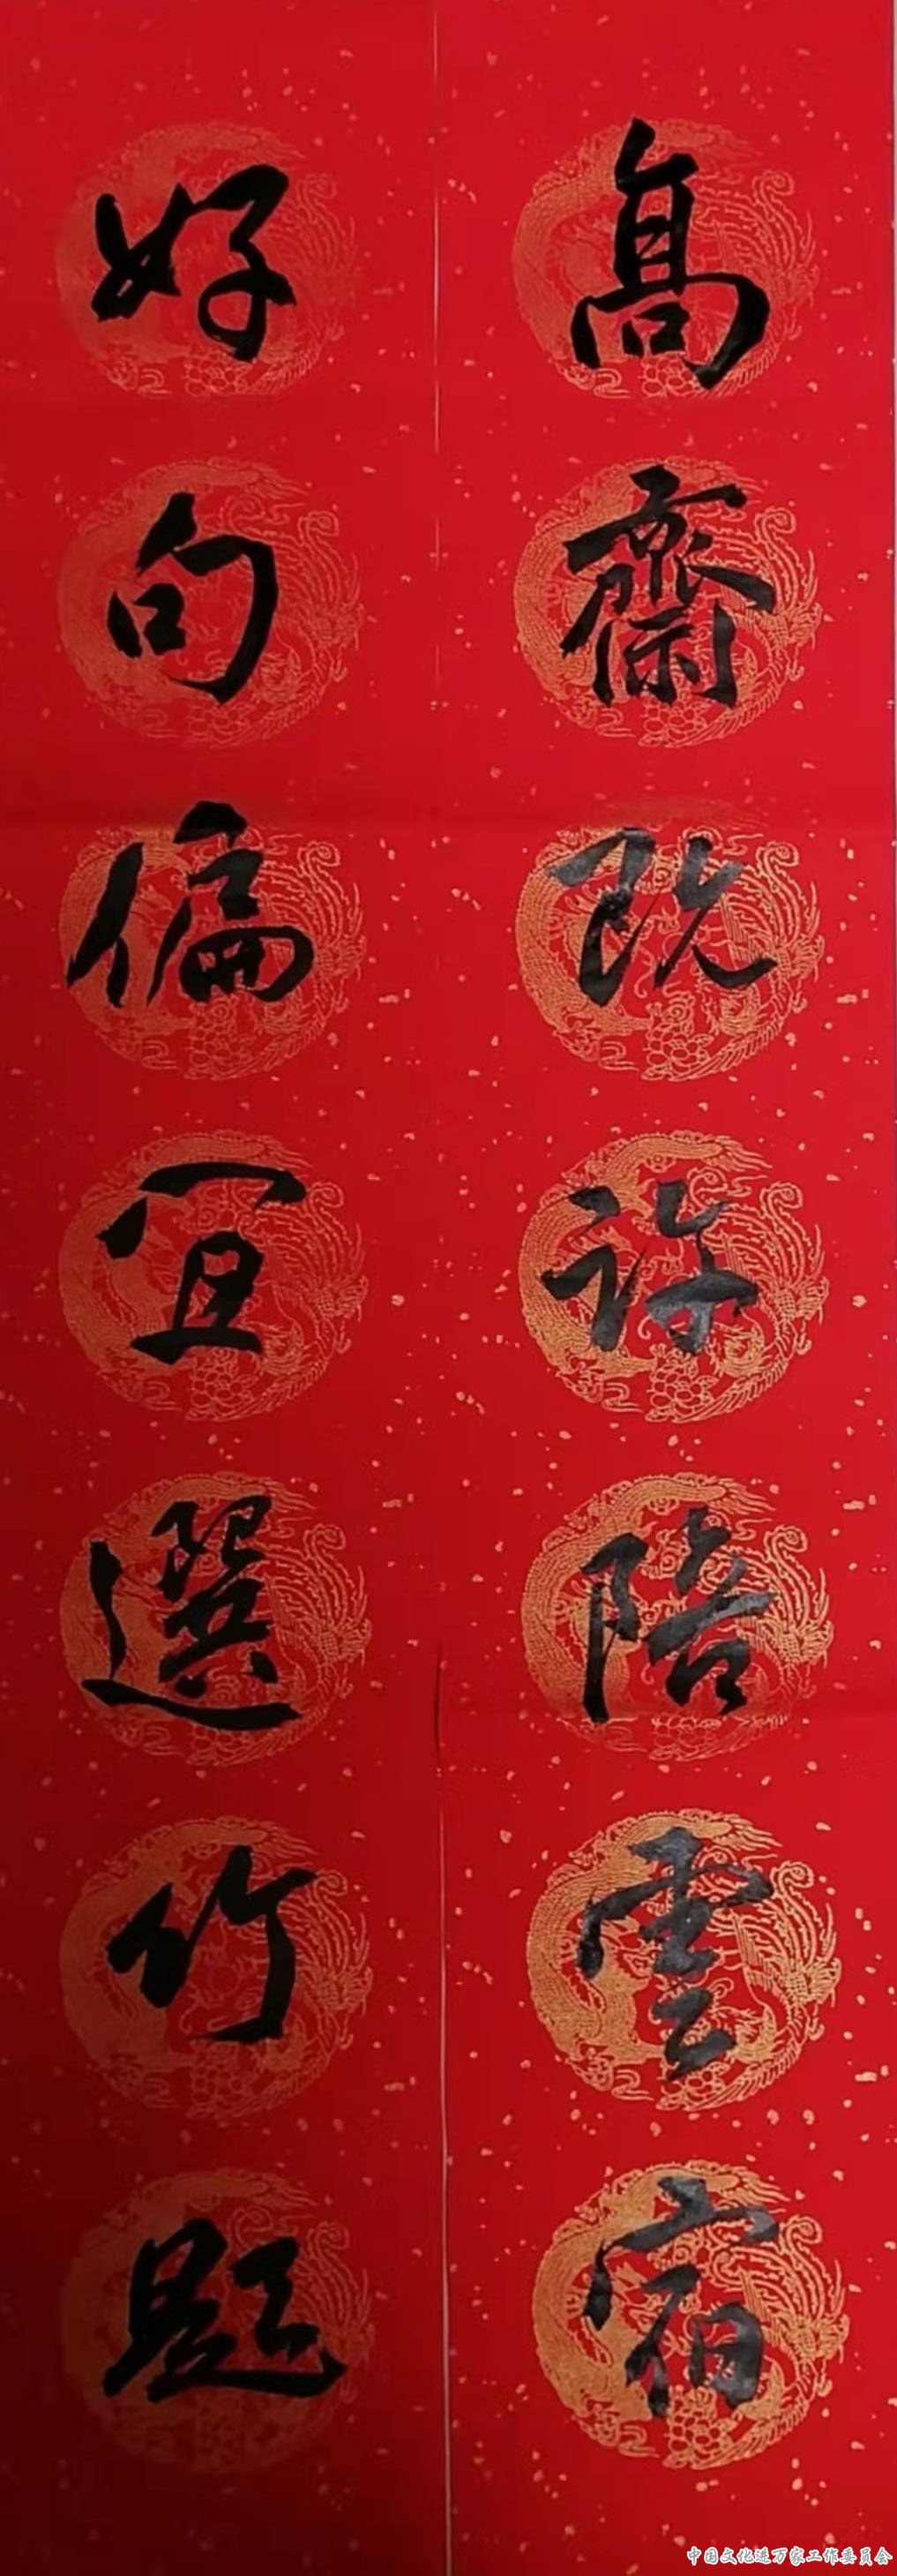 高齋既許陪雲宿
好句偏宜選竹題
中国文化进万家工作委员会